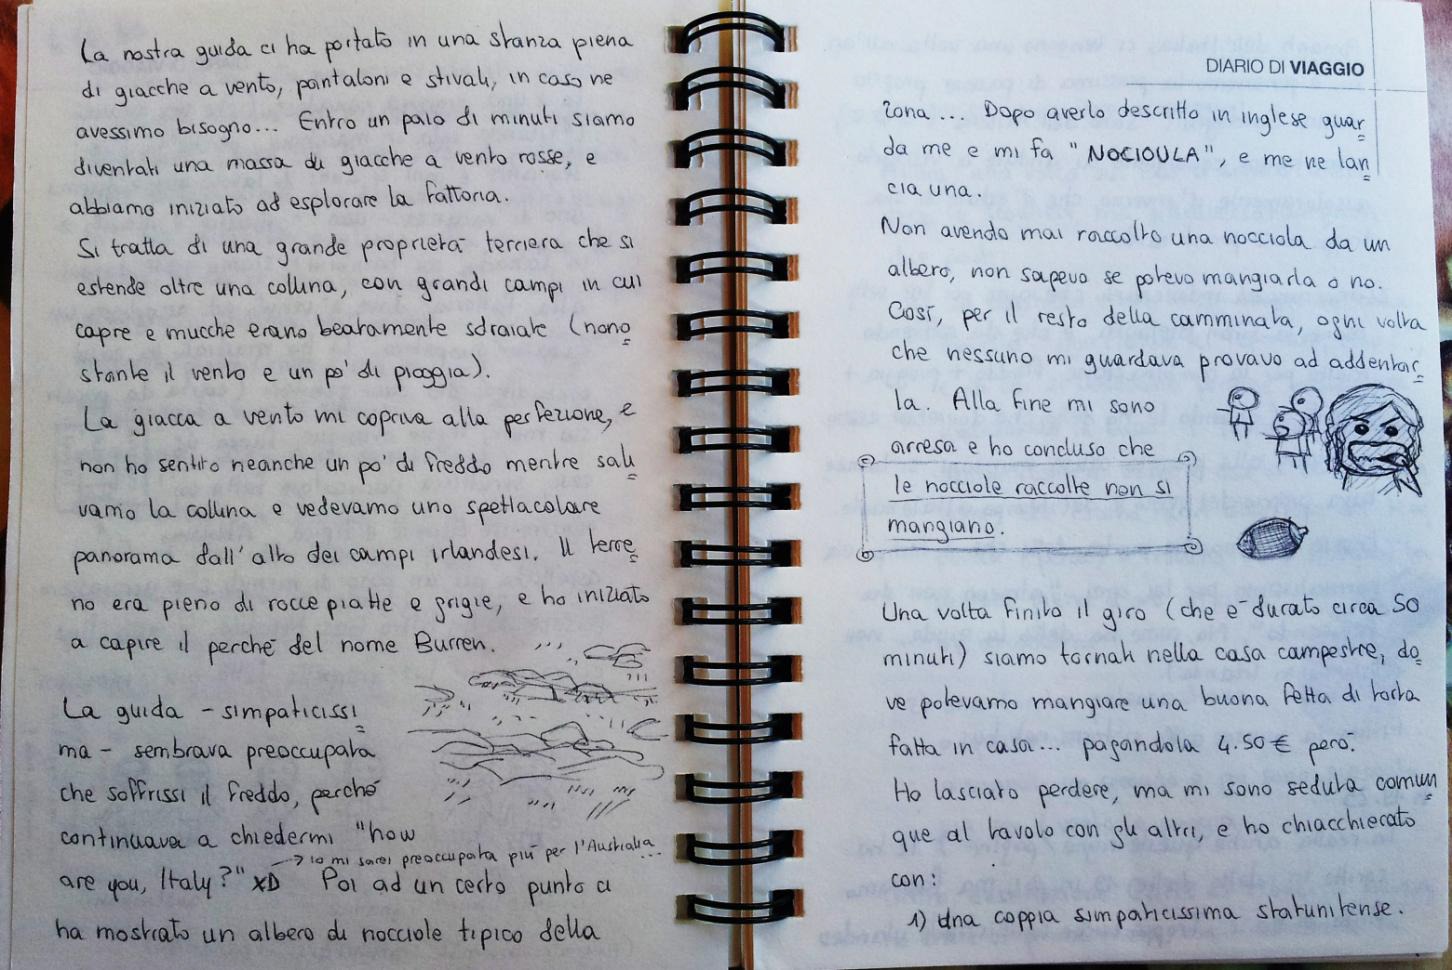 La nostra guida ci ha portato in una stanza piena
di giacche a vento, pantaloni e stivali, in caso ne
avessimo bisogno... Entro un paio di minuti siamo
diventati una massa di giacche a vento rosse, e
abbiamo iniziato ad esplorare la fattoria.
Si tratta di una grande proprietà terriera che si
estende oltre una collina, con grandi campi in cui
capre e mucche erano beatamente sdraiate (nono
stante il vento e un po' di pioggia).
La giacca a vento mi copriva alla perfezione, e
non ho sentito neanche un po' di freddo mentre sali
vamo la collina e vedevamo uno spettacolare
panorama dall'alto dei campi irlandesi. Il terre
no era pieno di rocce piatte e grigie, e ho iniziato
a capire il perché del nome Burren.
La guida - simpaticissi
ma - sembrava preoccupata
che soffrissi il freddo, perché
continuava a chiedermi "how
→ io mi sarei preoccupata più per l'Australia...
are you, Italy?" XD Poi ad un certo punto ci
ha mostrato un albero di nocciole tipico della
DIARIO DI VIAGGIO
zona... Dopo averlo descritto in inglese guar
da me e mi fa "NOCIOULA", e me ne lan
cia una.
Non avendo mai raccolto una nocciola da un
albero, non sapevo se potevo mangiarla o no.
Così, per il resto della camminata, ogni volta
che nessuno mi guardava provavo ad addentar
la. Alla fine mi sono
arresa e ho concluso che
le nocciole raccolte non si
mangiano.
Una volta finito il giro (che è durato circa 50
minuti) siamo tornati nella casa campestre, do
ve potevamo mangiare una buona fetta di torta
fatta in casa... pagandola 4.50 € però.
Ho lasciato perdere, ma mi sono seduta comun
que al tavolo con gli altri, e ho chiacchierato
con:
1) Una coppia simpaticissima statunitense.